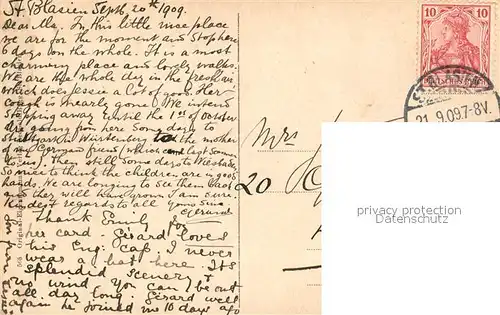 St. Blasien Sept. 20th 1909.
Dear May. In this little nice place
we are for the moment and Stophen
6 days on the whole. It is a most
charming place and lovely walks.
We are the whole day in the fresh air
which does Jessie a lot of good. Her
cough is nearly gone. We intend
stopping away until the 1st of october
are going from here some days to
Stuttgart in Würtemberg to the mother
of my German friend (which last Summer
to us). Then still some days to Wiesbaden
So nice to think the children are in good
hands. We are longing to see them back
and they will have grown I am sure.
Kindest regards to all yours sinc.
Thank Emily for
her card. Gérard loves
his Eng. cap, I never
wear a hat here. It's
splendid scenery &
no wind. You can be out
all day long. Gérard well
again he joined me 10 days ago
Mrs
20
10 10
DEUTSCHES REICH
ST. BLASIEN
21.9.09.7-8V.
privacy protection
Datenschutz